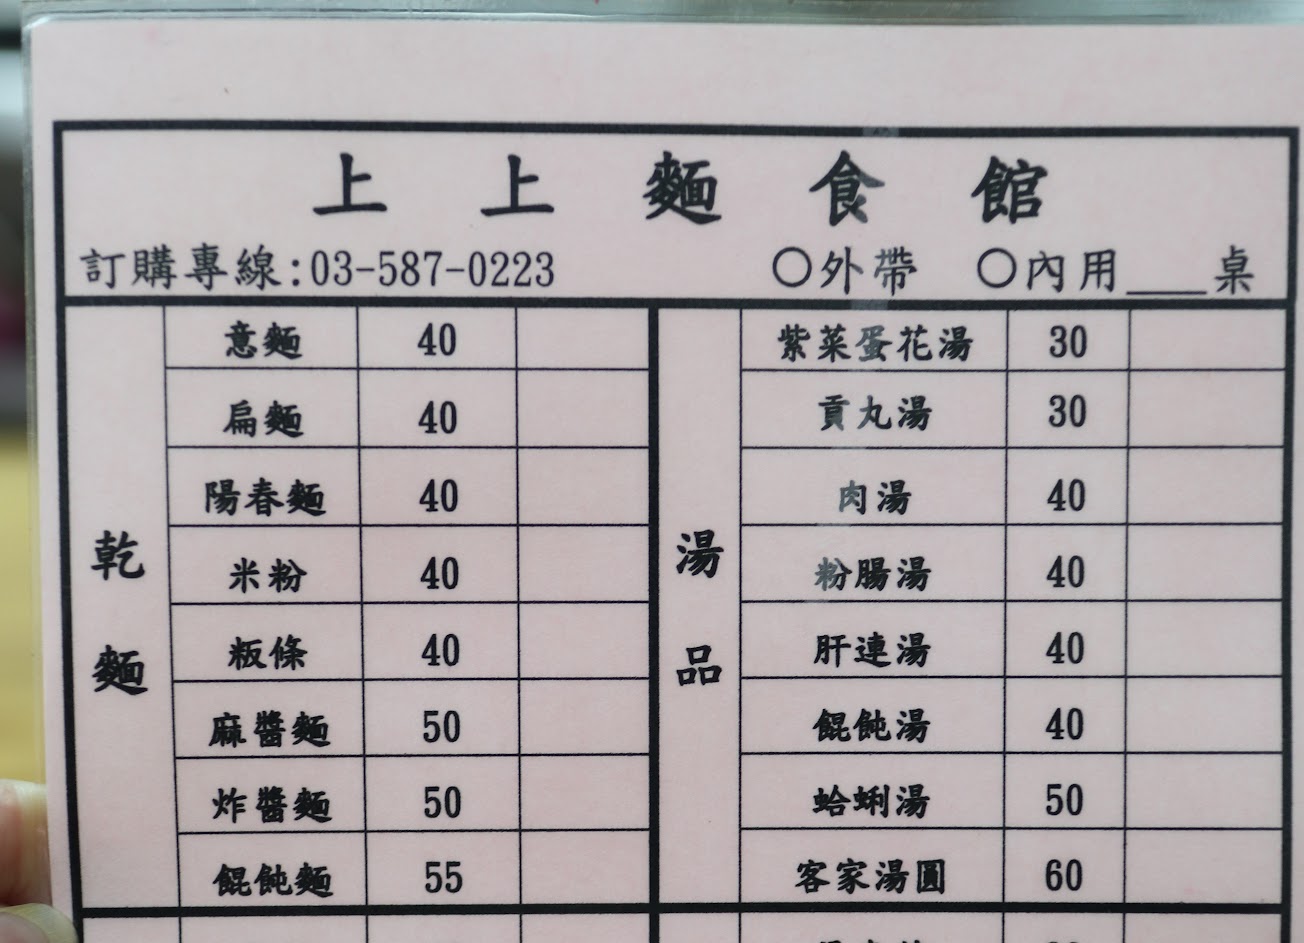 上上麵食館
訂購專線:03-587-0223 ○外帶 ○內用___桌
乾麵
意麵 40
扁麵 40
陽春麵 40
米粉 40
粄條 40
麻醬麵 50
炸醬麵 50
餛飩麵 55
湯品
紫菜蛋花湯 30
貢丸湯 30
肉湯 40
粉腸湯 40
肝連湯 40
餛飩湯 40
蛤蜊湯 50
客家湯圓 60